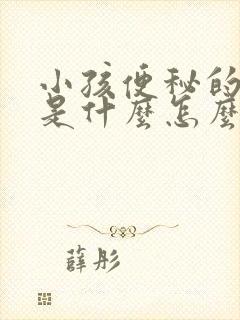 小孩便秘的
是什麼怎麼
薛彤